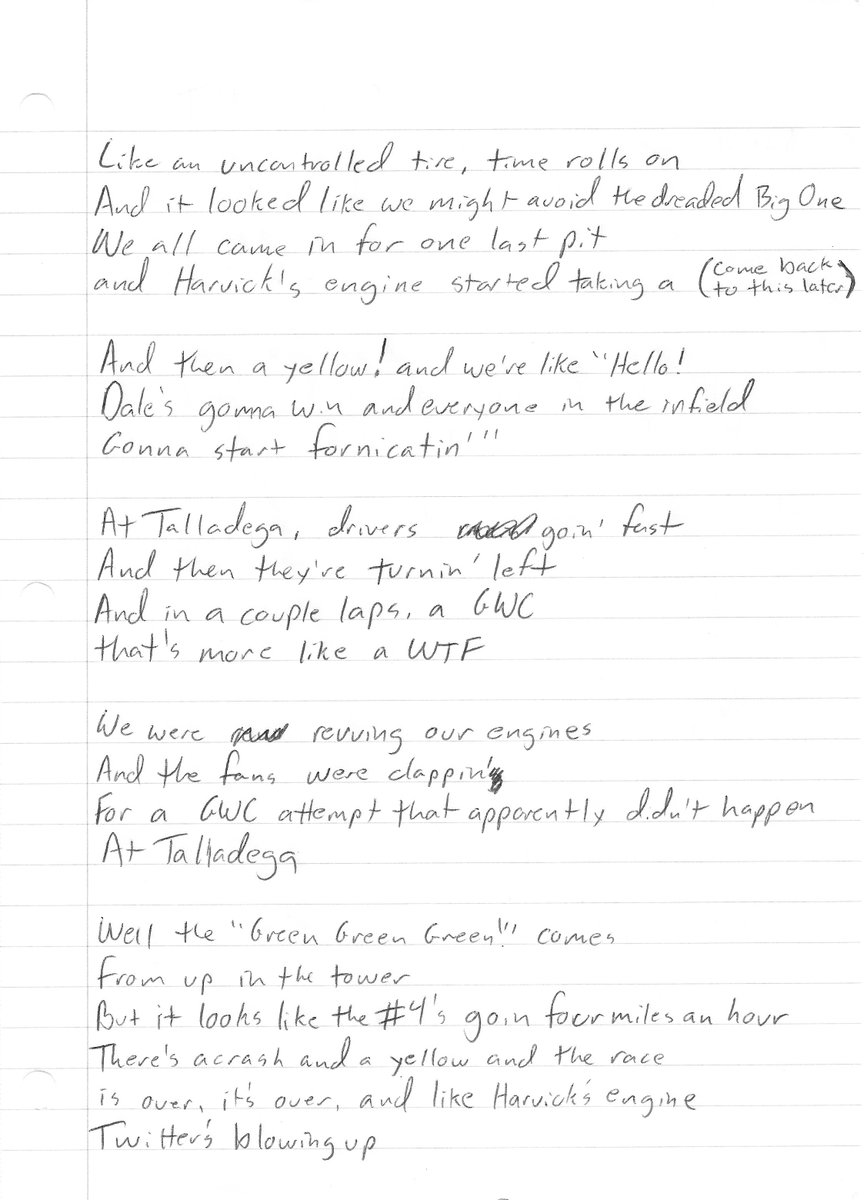 Like an uncontrolled tire, time rolls on
And it looked like we might avoid the dreaded Big One
We all came in for one last pit
and Harvick's engine started taking a (come back to this later)
And then a yellow! and we're like "Hello!
Dale's gonna win and everyone in the infield
Gonna start fornicatin'"
At Talladega, drivers goin' fast
And then they're turnin' left
And in a couple laps, a GWC
that's more like a WTF
We were revving our engines
And the fans were clappin'
For a GWC attempt that apparently didn't happen
At Talladega
Well the "Green Green Green!" comes
From up in the tower
But it looks like the #4's goin four miles an hour
There's a crash and a yellow and the race
is over, it's over, and like Harvick's engine
Twitter's blowing up